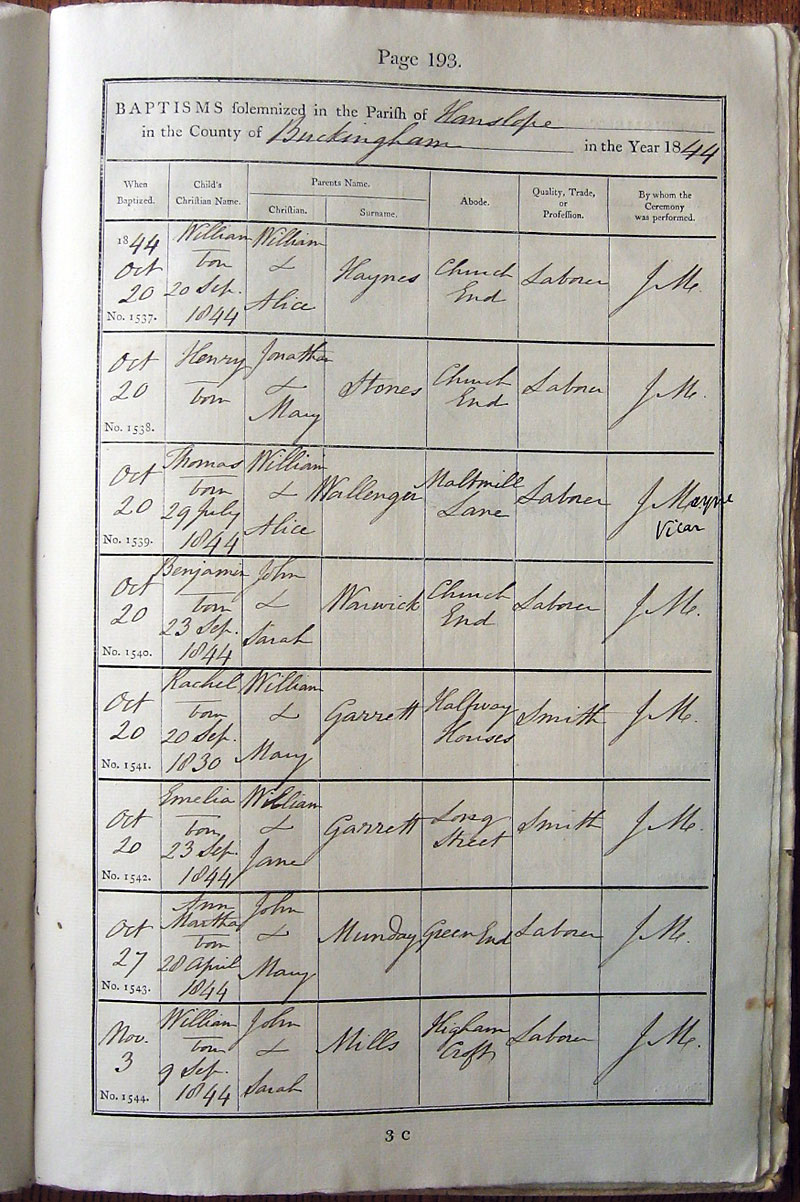 Page 193.
BAPTISMS solemnized in the Parish of Hanslope
in the County of Buckingham in the Year 1844
When Baptized.
Child's Christian Name.
Parents Name.
Christian.
Surname.
Abode.
Quality, Trade, or Profession.
By whom the Ceremony was performed.
1844 Oct 20 No. 1537.
William born 20 Sep. 1844
William & Alice
Haynes
Church End
Laborer
J M.
Oct 20 No. 1538.
Henry born
Jonathan & Mary
Stones
Church End
Laborer
J M.
Oct 20 No. 1539.
Thomas born 29 July 1844
William & Alice
Wallenger
Maltmill Lane
Laborer
J Mayne Vicar
Oct 20 No. 1540.
Benjamin born 23 Sep. 1844
John & Sarah
Warwick
Church End
Laborer
J M.
Oct 20 No. 1541.
Rachel born 20 Sep. 1830
William & Mary
Garrett
Halfway Houses
Smith
J M.
Oct 20 No. 1542.
Emelia born 23 Sep. 1844
William & Jane
Garrett
Long Street
Smith
J M.
Oct 27 No. 1543.
Ann Martha born 28 April 1844
John & Mary
Munday
Green End
Laborer
J M.
Nov. 3 No. 1544.
William born 9 Sep. 1844
John & Sarah
Mills
Higham Croft
Laborer
J M.
3 C